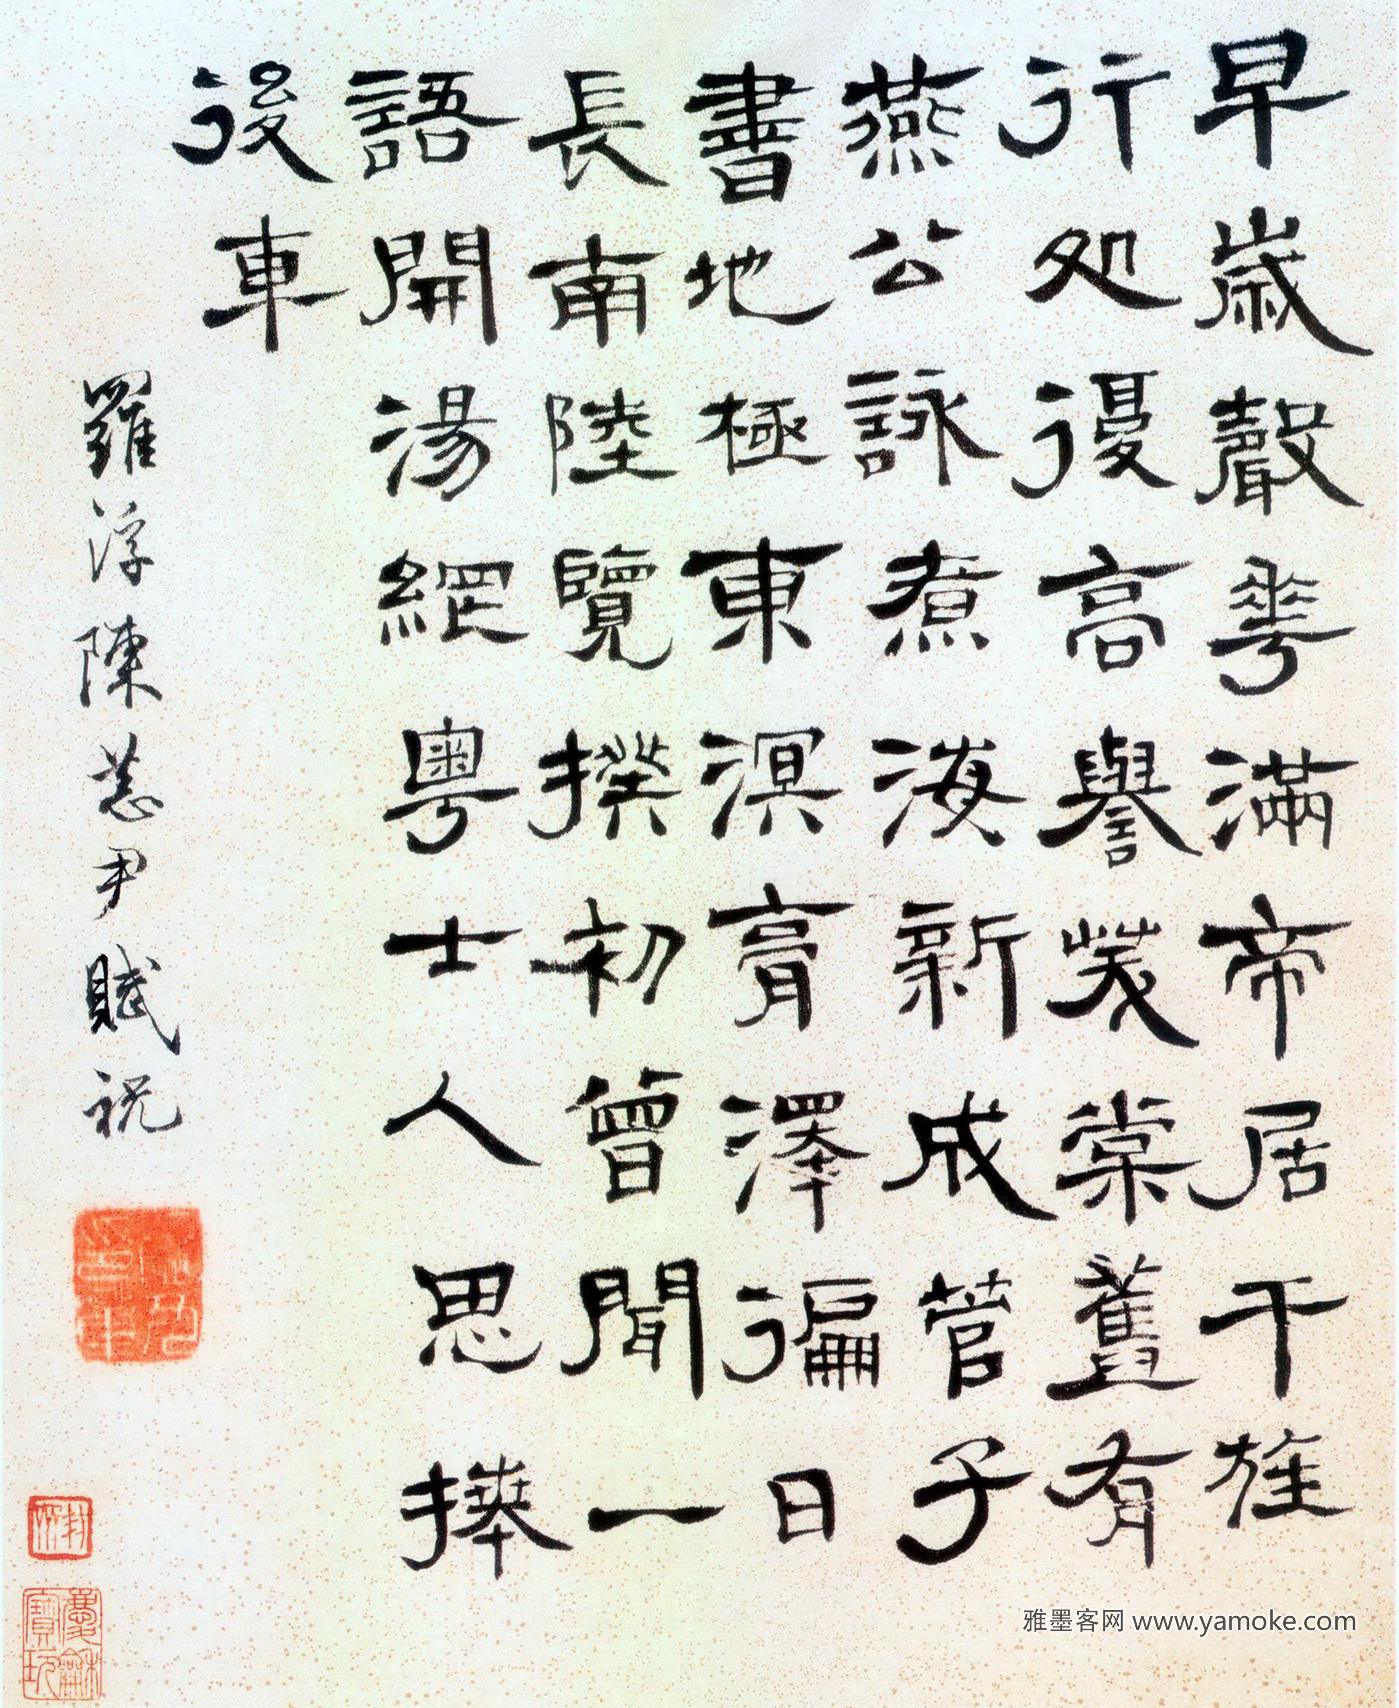 早歲聲華滿帝居干旌
行処復高譽茂棠舊有
燕公詠煮海新成管子
書地極東溟膏澤徧日
長南陸覽揆初曾聞一
語開湯網粵士人思捧
後車
羅浮陳恭尹賦祝
雅墨客网 www.yamoke.com